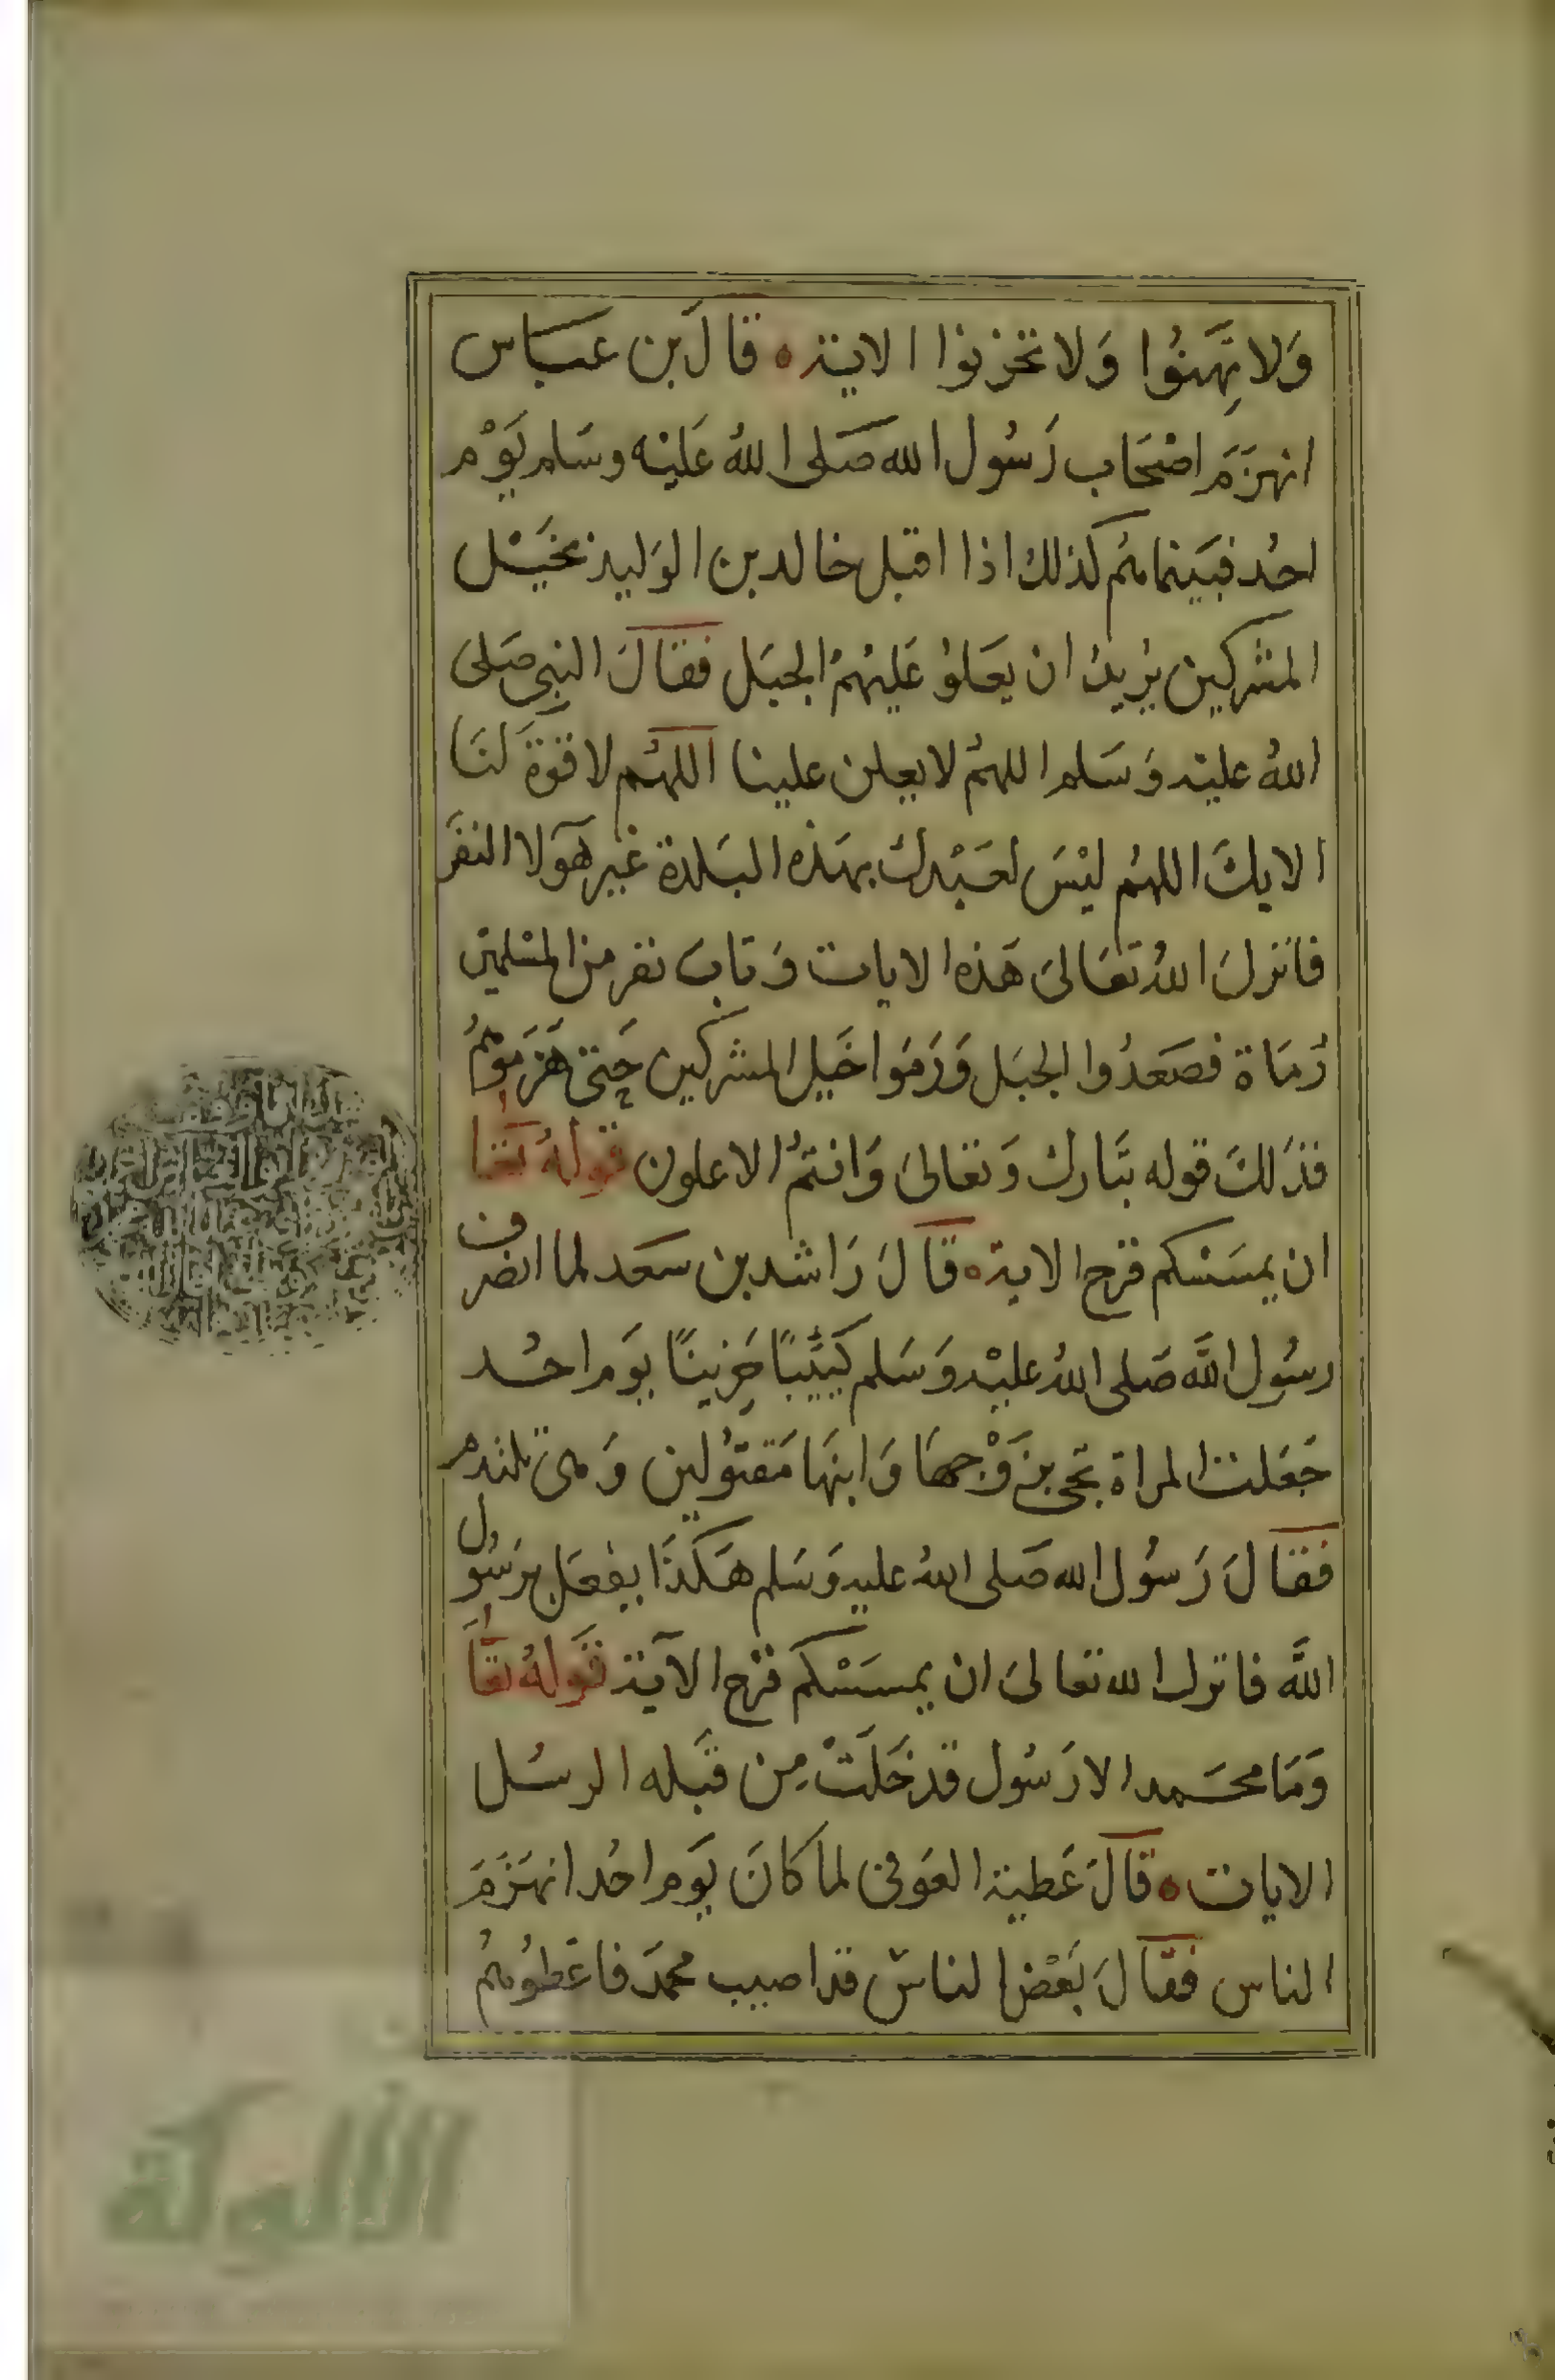 وَلا تَهِنُوا وَلا تحزنوا الاية ه قالَ بن عباس
انهزَمَ اصْحَاب رَسُول الله صَلى اللهُ عَليْه وسَلم يَوْم
احُد فبَينما هُم كذلك اذا اقبل خالد بن الوَليد بخيْل
المشركين يُريدُ ان يعلوُ عَليْهمُ الجبَل فقالَ النبي صَلى
اللهُ عليه وَسَلم اللهمُ لا يعلن علينا اللهُم لا قوةَ لنَا
الا بك اللهُم ليْسَ لعَبْدك بهَذه البَلدة غير هَولا النفَر
فانزلَ اللهُ تعَالىَ هَذه الايات وَتابَ نفر من المسْلمين
رُمَاة فصَعدُوا الجبَل وَرَمَوا خَيل المشركين حَتى هَزمَوهمُ
فذَلكَ قوله تبَارك وَتعالىَ وَانتمُ الاعلون قوله تعا
ان يمسَسْكم قرح الاية ه قالَ رَاشد بن سَعد لما انصرف
رسُول اللَّه صَلى اللهُ عليْه وَسَلم كَئيبًا حَزينًا يوَم احُد
جَعَلت المراة تجى بزَوْجهَا وَابنهَا مَقتوُلين وَهى تلتدم
فقالَ رَسُول الله صَلى اللهُ عليه وَسَلم هَكَذَا يفعَل برَسُول
اللَّه فانزل الله تعالىَ ان يمسَسْكم قرح الآية قَولهُ تعَا
وَمَا محمد الا رَسُول قد خَلَتْ مِن قَبله الرسُل
الايات ه قالَ عَطية العَوفى لما كانَ يوَم احُد انهَزَمَ
الناس فقالَ بَعْض الناس قد اصيب محمَد فاعَطوُهمُ
الألوكة